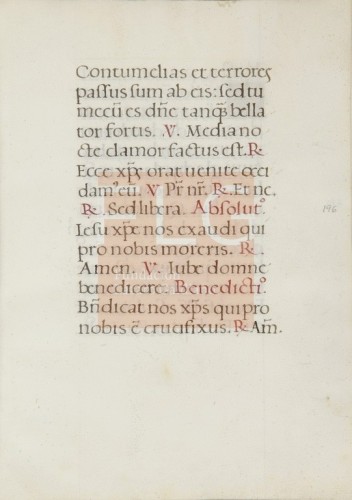 Contumelias et terrores
passus sum ab eis: sed tu
mecū es dñe tanq̃ bella
tor fortis. V. Media no
cte clamor factus est. R
Ecce xp̃e orat uenite occi
dam⁹ eū. V Pr̃ nr̃. R. Et ne.
R. Sed libera. Absolut⁰.
Iesu xp̃e nos exaudi qui
pro nobis moreris. R.
Amen. V. Iube domne
benedicere. Benedicti⁰.
Bñdicat nos xp̃s qui pro
nobis ē crucifixus. R Am̃.
196